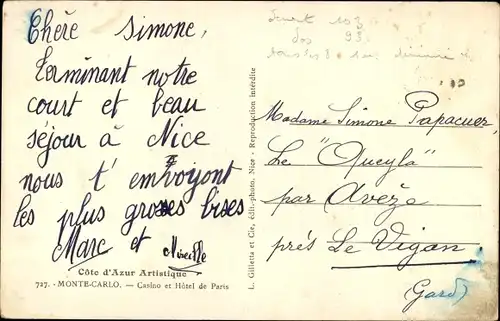 Chère Simone,
Terminant notre
court et beau
séjour à Nice
nous t'envoyont
les plus grosses bises
Marc et Mireille
Côte d'Azur Artistique
727. - MONTE-CARLO. - Casino et Hôtel de Paris
L. Gilletta et Cie, édit.-photo, Nice - Reproduction interdite
103
Dos 93
Madame Simone Papacuer
Le "Queyla"
par Avèze
près Le Vigan
(Gard)